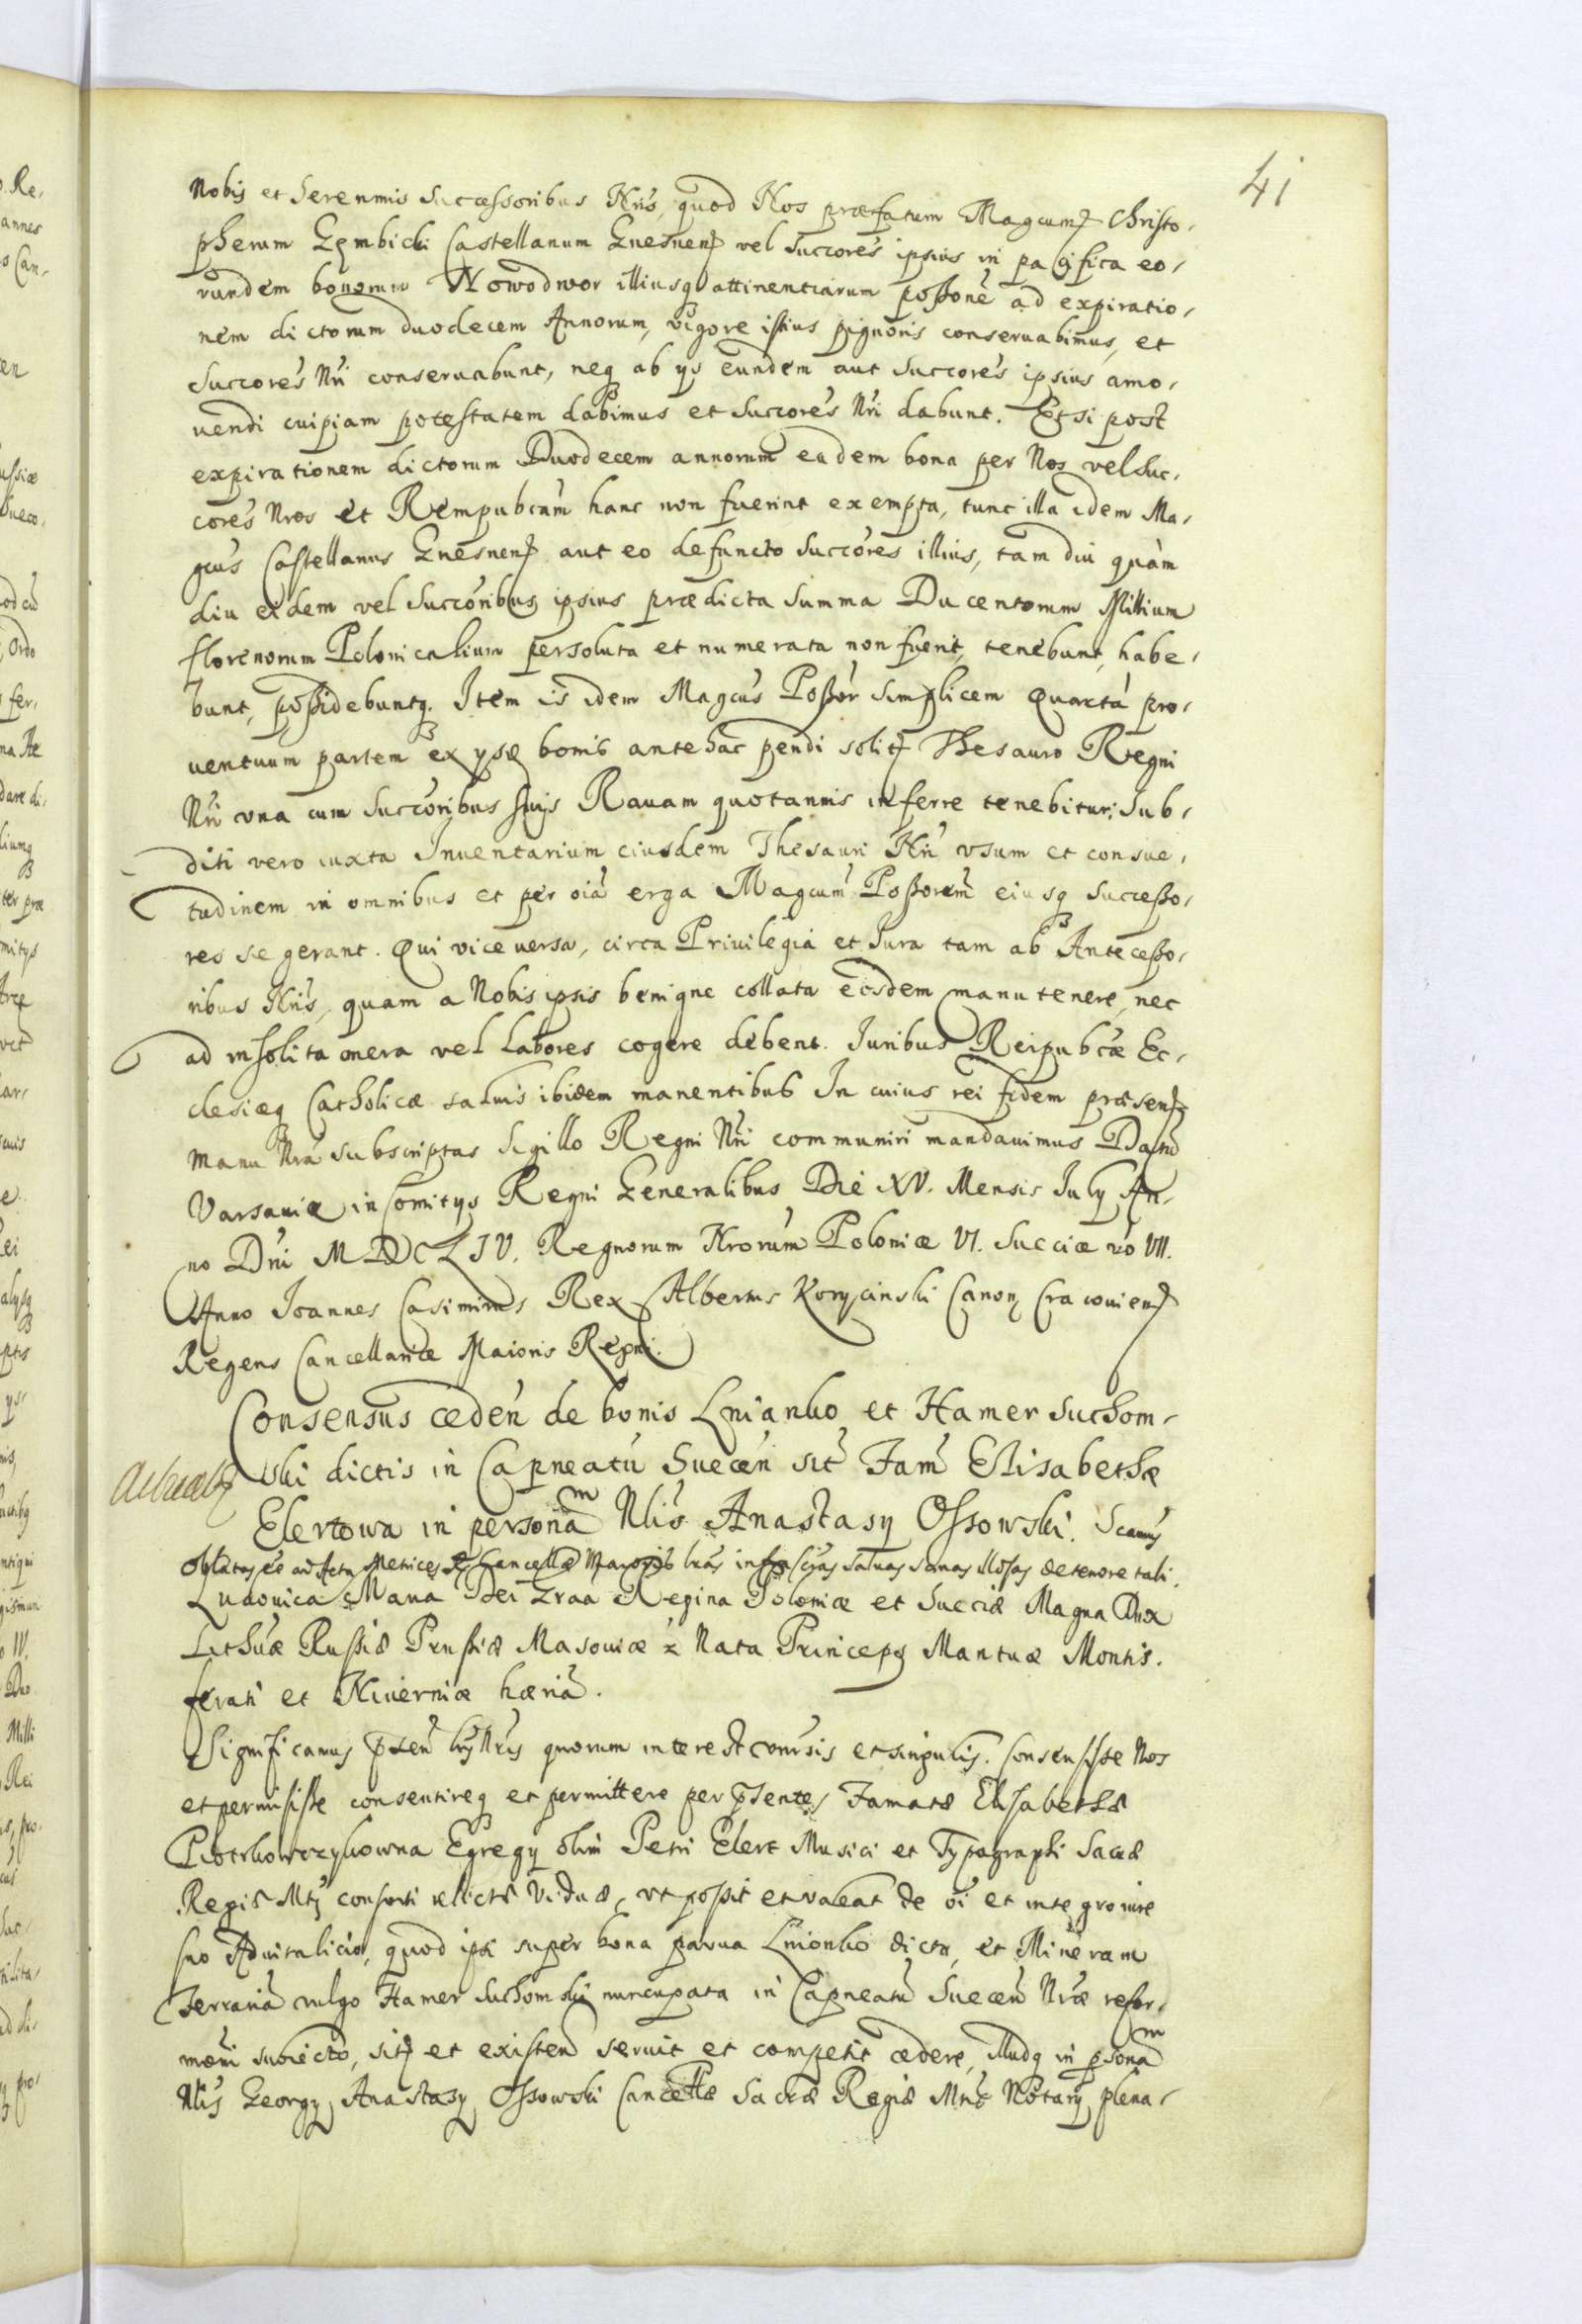 41
Nobis et Serenmis Successoribus Nris, quod Nos præfatum Magcum Christo,
pherum Gembicki Castellanum Gnesnen vel Succores ipsius in pacifica eo,
rundem bonorum Nowodwor illiusq attinentiarum possone ad expiratio,
nem dictorum duodecem Annorum, vigore istius pignoris conseruabimus, et
Succores Nri conseruabunt, neq ab ijs eundem aut Succores ipsius amo,
uendi cuipiam potestatem dabimus et Succores Nri dabunt. Et si post
expirationem dictorum Duodecem annorum eadem bona per Nos vel Suc,
cores Nros et Rempubcam hanc non fuerint exempta, tunc illa idem Ma,
gcus Castellanus Gnesnen aut eo defuncto Succores illius, tam diu quàm
diu eidem vel Succoribus ipsius prædicta Summa Ducentorum Millium
florenorum Polonicalium persoluta et numerata non fuerit, tenebunt, habe,
bunt, possidebuntq. Item is idem Magcus Possor simplicem Quartá pro,
uentuum partem ex ijsd bonis antehac pendi solit Thesauro Regni
Nri vna cum Succoribus suis Rauam quotannis inferre tenebitur; Sub,
diti vero iuxta Inuentarium eiusdem Thesauri Nri vsum et consue,
tudinem in omnibus et per oia erga Magcum Possorem eiusq Successo,
res se gerant. Qui vice uersa, circa Priuilegia et Iura tam ab Antecesso,
ribus Nris, quam a Nobis ipsis benigne collata eosdem manutenere, nec
ad insolita onera vel labores cogere debent. Iuribus Reipubcæ Ec,
clesiæq Catholicæ saluis ibidem manentibus In cuius rei fidem præsen
manu Nra subscriptas Sigillo Regni Nri communiri mandauimus Datu
Varsauiæ in Comitijs Regni Generalibus Die XV. Mensis Iulij An,
no Dni MDCLIV. Regnorum Nrorum Poloniæ VI. Sueciæ vo VII.
Anno Joannes Casimirus Rex Albertus Korycinski Canon Cracouien
Regens Cancellariæ Maioris Regni.
Consensus ceden de bonis Lnianko et Hamer Suchom,
ski dictis in Capneatu Suecen sit Fam Elisabethæ
Elertowa in personam Nlis Anastasij Ossowski. Scamus
Oblatas ee ad Acta Metrices Cancellæ Maioris lras infrascras saluas sanas illæsas de tenore tali.
Ludouica Maria Dei Graa Regina Poloniæ et Sueciæ Magna Dux
Lithuæ Russiæ Prussiæ Masouiæ Nata Princeps Mantuæ Montis.
ferati et Niuerniæ hæria.
Significamus psen lris Nris quorum interest vnirsis et singulis. Consensisse Nos
et permisisse consentireq et permittere per psentes Famatæ Elisabethæ
Piotrkowczykowna Egregij olim Petri Elert Musici et Typographi Sacræ
Regiæ Mtis consorti relictæ Viduæ, vt possit et valeat de oi et integro iure
suo Aduitalicio, quod ipsi super bona parua Lnionko dicta, et Mineram
Ferraria vulgo Hamer Suchomski nuncupata in Capneatu Suecen Nræ refor,
mæni subiecto, sit et existen seruit et competit cedere, illudq in psonam
Nlis Georgij Anastasij Ossowski Cancellæ Sacræ Regiæ Mtis Notarij plena,